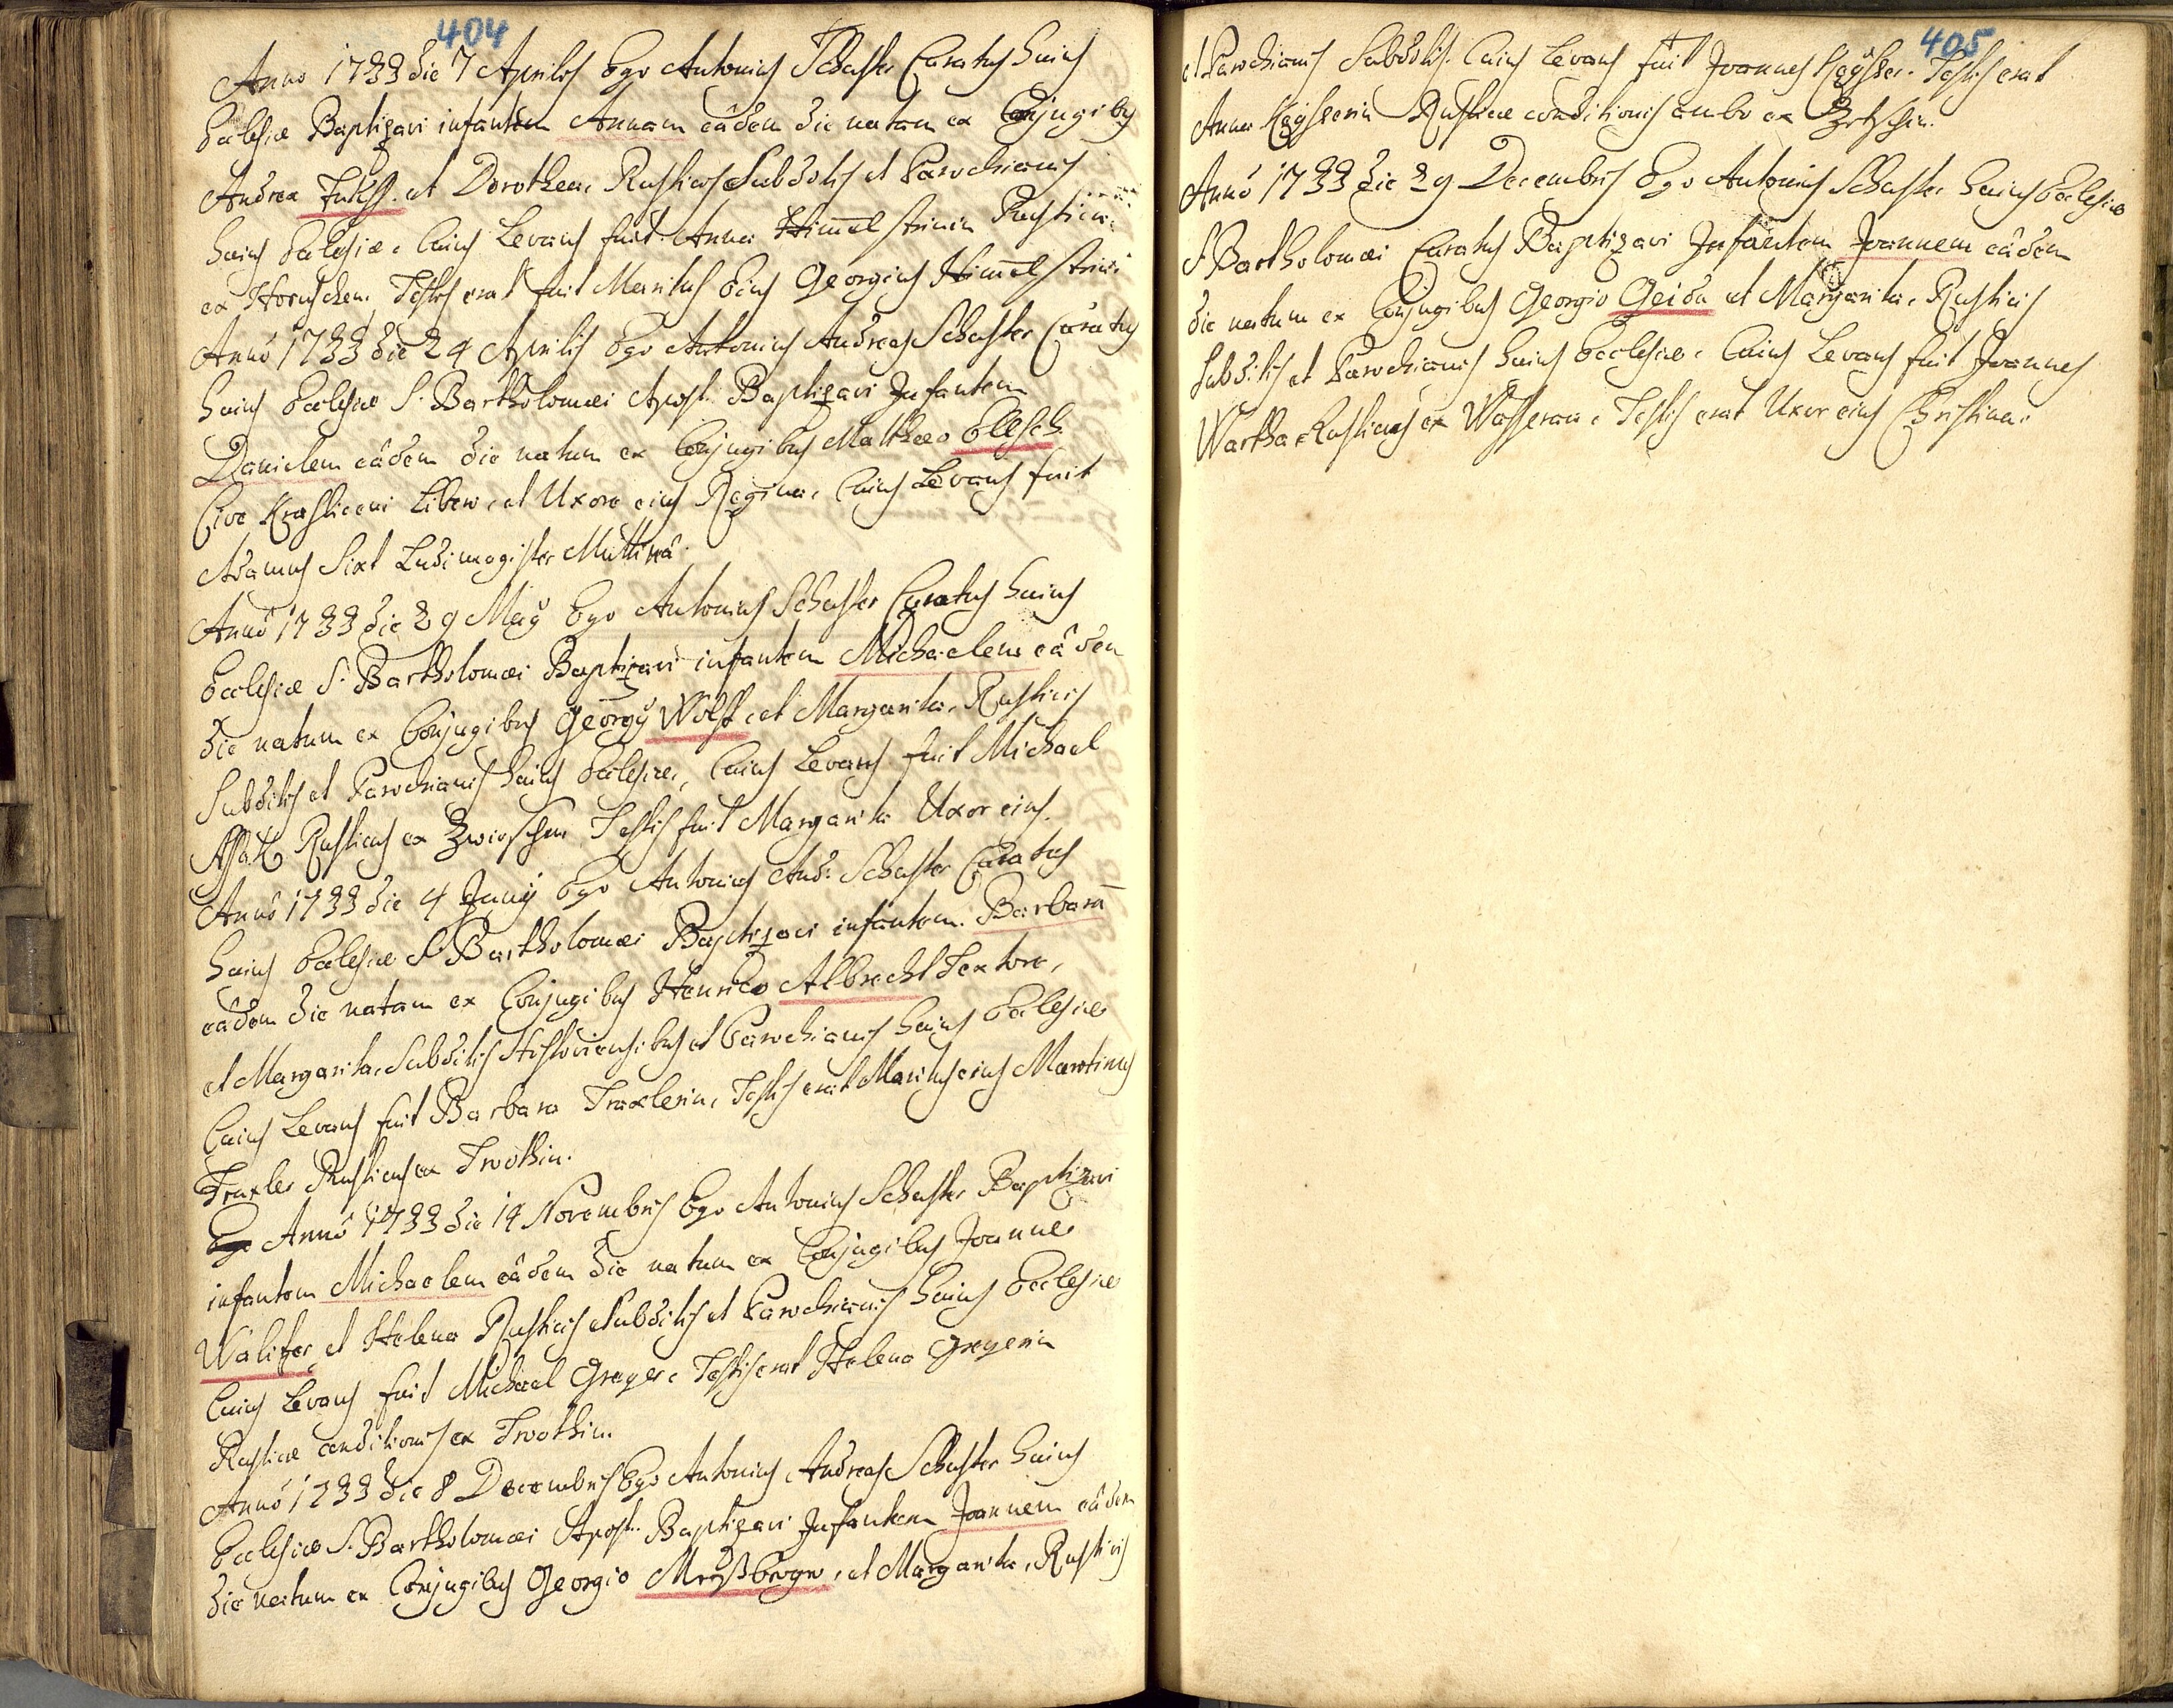 404
Anno 1733 die 7 Aprilis Ego Antonius Schuster Curatus huius
Ecclesiæ Baptizavi infantem Annam eâdem die natam ex Conjugibus
Andrea et Dorothea, Rusticis Subditis et Parochianis
huius Ecclesiæ. Cuius Levans fuit Anna Him̅elsteinin Rustica
ex Testis erat fuit Maritus Eius Georgius Him̅elstein
Annô 1733 die 24 Aprilis Ego Antonius Andreas Schuster Curatus
huius Ecclesiæ S. Bartholomæi Apost. Baptizavi Infantem
Danielem eâdem die natum ex Conjugibus Matthæo
Cive Libero, et Uxore eius Regina, Cuius Levans fuit
Adamus Sixt Ludimagister
Annô 1733 die 29 Maÿ Ego Antonius Schuster Curatus huius
Ecclesiæ S. Bartholomæi Baptizavi infantem Michaelem eâdem
die natum ex Conjugibus Georgÿ Wolff, et Margarita, Rusticis
Subditis et Parochianis huius Ecclesiæ, Cuius Levans fuit Michael
Rusticus ex Testis fuit Margarita Uxor eius.
Annô 1733 die 4 Junÿ Ego Antonius And: Schuster Curatus
huius Ecclesiæ S. Bartholomæi Baptizavi infantem. Barbara̅
eâdem die natam ex Conjugibus Henrico Albrecht Textore,
et Margarita, Subditis et Parochianis huius Ecclesiæ
Cuius Levans fuit Barbara Traxlerin, Testis erat Maritus eius Martinus
Traxler Rusticus ex Trvothin.
Ego Annô 1733 die 14 Novembris Ego Antonius Schuster Baptizavi
infantem Michaelem eâdem die natum ex Conjugibus Joanne
Walitzer et Helena Rusticis Subditis et Parochianis huius Ecclesiæ
Cuius Levans fuit Michael Greger. Testis erat Helena Gregerin
Rusticæ conditionis ex Trvothin.
Annô 1733 die 8 Decembris Ego Antonius Andreas Schuster huius
Ecclesiæ S. Bartholomæi Apost. Baptizavi Infantem Joannem eâdem
die natum ex Conjugibus Georgio et Margarita, Rusticis
405
et Parochianis Subditis. Cuius Levans fuit Joannes Keÿsler. Testis erat
Anna Keÿslerin Rusticæ conditionis ambo ex
Annô 1733 die 29 Decembris Ego Antonius Schuster huius Ecclesiæ
S Bartholomæi Curatus Baptizavi Infantem Joannem eâdem
die natum ex Conjugibus Georgio Geida et Margarita, Rusticis
Subditis et Parochianis huius Ecclesiæ. Cuius Levans fuit Joannes
Wartha Rusticus ex Wasserau, Testis erat Uxor eius Christina.